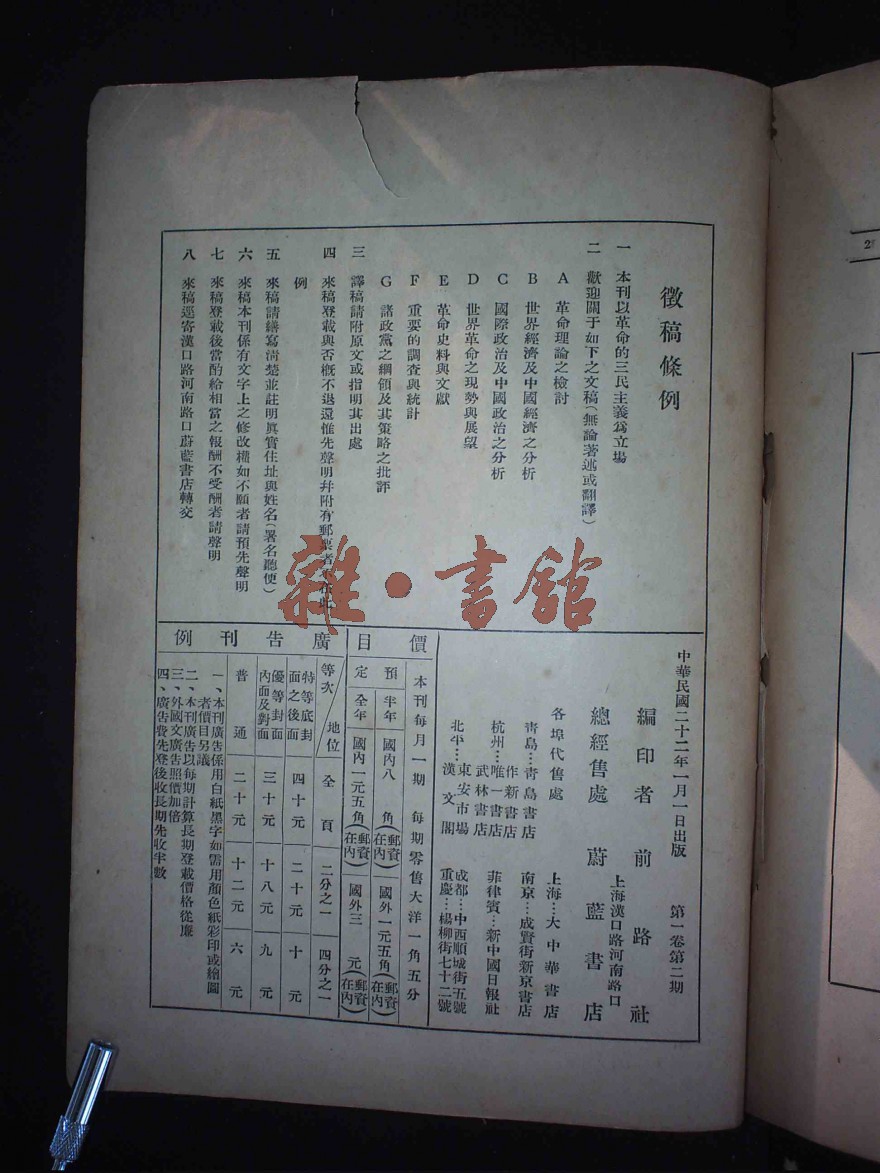 徵稿條例
一　本刊以革命的三民主義爲立場
二　歡迎關于如下之文稿（無論著述或翻譯）
A　革命理論之檢討
B　世界經濟及中國經濟之分析
C　國際政治及中國政治之分析
D　世界革命之現勢與展望
E　革命史料與文獻
F　重要的調查與統計
G　諸政黨之綱領及其策略之批評
三　譯稿請附原文或指明其出處
四　來稿登載與否概不退還惟先聲明幷附有郵票者不在此
例
五　來稿請繕寫清楚並註明眞實住址與姓名（署名聽便）
六　來稿本刊係有文字上之修改權如不願者請預先聲明
七　來稿登載後當酌給相當之報酬不受酬者請聲明
八　來稿逕寄漢口路河南路口蔚藍書店轉交
中華民國二十二年一月一日出版　第一卷第二期
編印者　前路社
上海漢口路河南路口
總經售處　蔚藍書店
各埠代售處　上海…大中華書店
靑島…靑島書店　南京…成賢街新京書店
杭州…作新書店
唯一書店
武林書店
菲律賓…新中國日報社
北平…東安市場
漢文閣
成都…中西順城街五號
重慶…楊柳街七十二號
價目
本刊每月一期　每期零售大洋一角五分
預定
半年　國內八角（郵資在內）　國外一元五角（郵資在內）
全年　國內一元五角（郵資在內）　國外三元（郵資在內）
廣告刊例
等次　地位　全頁　二分之一　四分之一
特等底封面之後面　四十元　二十元　十元
優等封面內面及對面　三十元　十八元　九元
普通　二十元　十二元　六元
一、本刊廣告係用白紙黑字如需用顏色紙彩印或繪圖
者價目另議
二、本刊廣告以每期計算長期登載價格從廉
三、外國文廣告照價加倍
四、廣告費先登後收長期先收半數
雜·書館